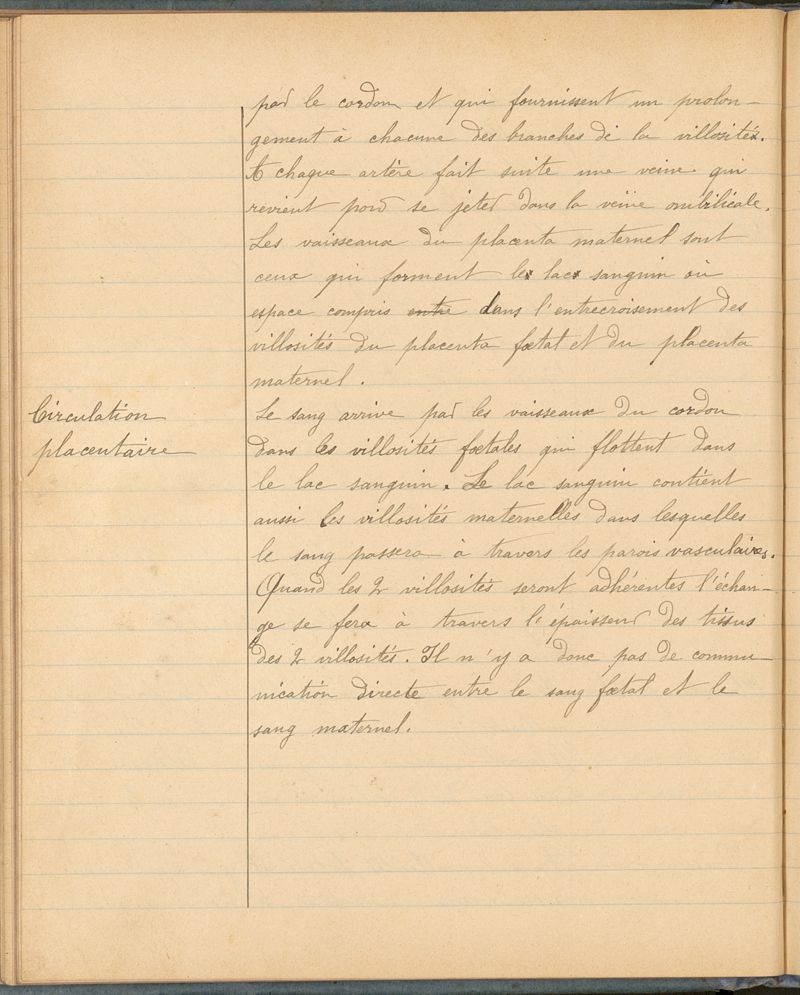 par le cordon et qui fournissent un prolon-
gement à chacune des branches de la villosité.
A chaque artère fait suite une veine qui
revient pour se jeter dans la veine ombilicale.
Les vaisseaux du placenta maternel sont
ceux qui forment le lac sanguin ou
espace compris entre dans l'entrecroisement des
villosités du placenta fœtal et du placenta
maternel.
Circulation
placentaire
Le sang arrive par les vaisseaux du cordon
dans les villosités fœtales qui flottent dans
le lac sanguin. Le lac sanguin contient
aussi les villosités maternelles dans lesquelles
le sang passera à travers les parois vasculaires.
Quand les 2 villosités seront adhérentes l'échan-
ge se fera à travers l'épaisseur des tissus
des 2 villosités. Il n'y a donc pas de commu-
nication directe entre le sang fœtal et le
sang maternel.